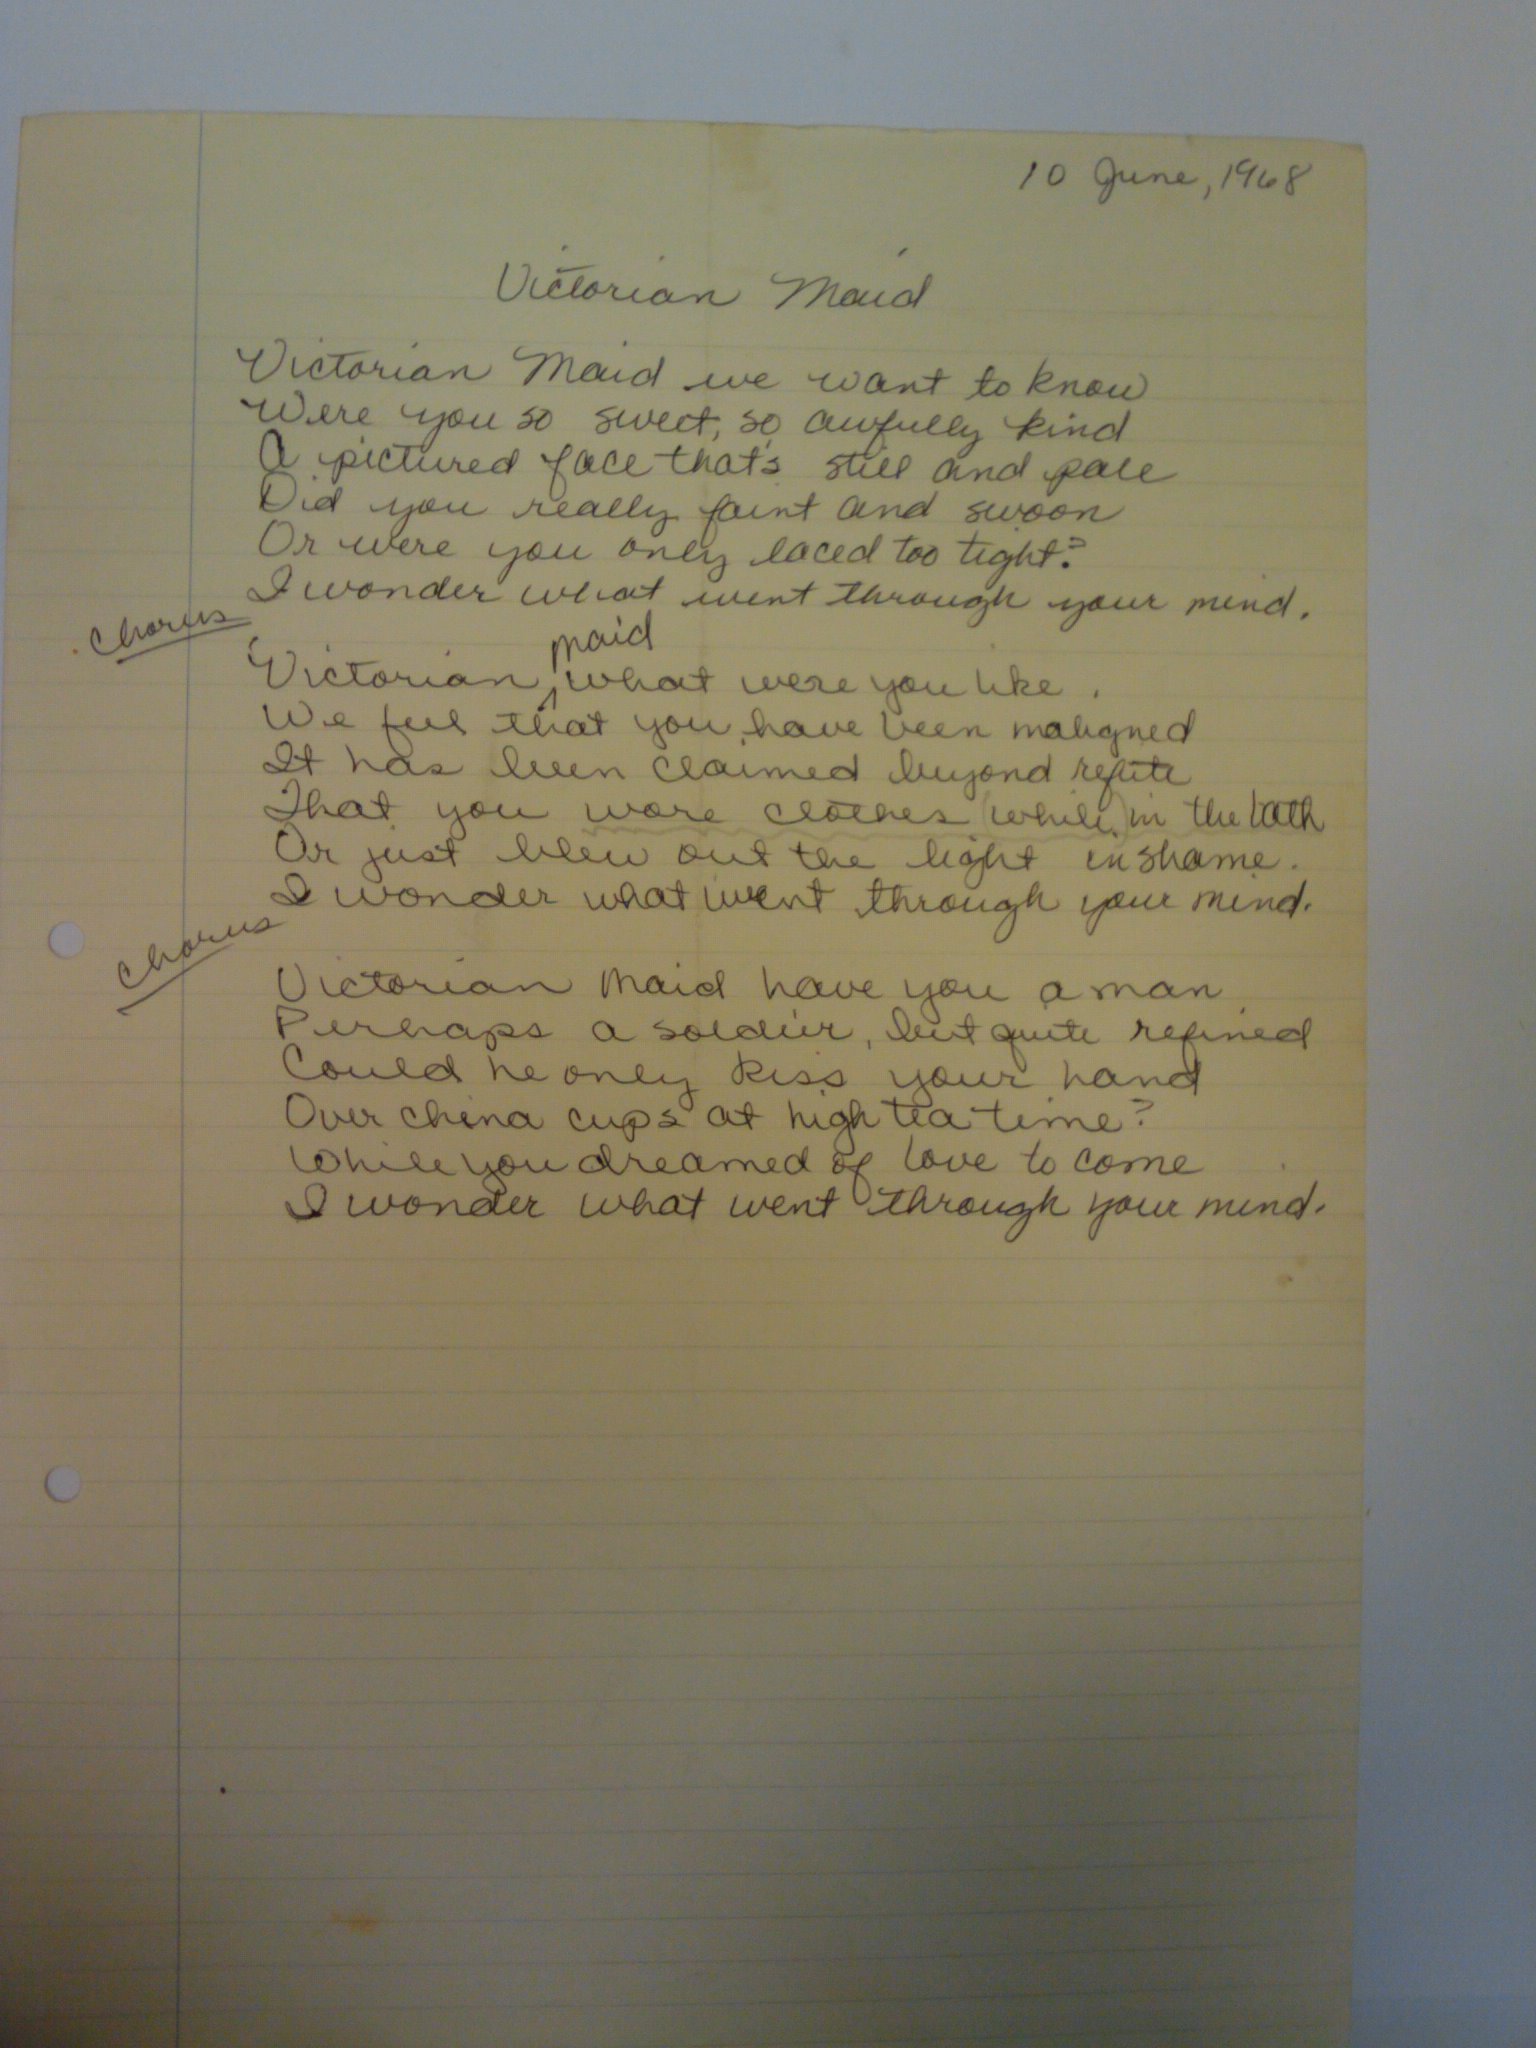 10 June, 1968
Victorian Maid
Victorian Maid we want to know
Were you so sweet, so awfully kind
A pictured face that's still and pale
Did you really faint and swoon
Or were you only laced too tight?
I wonder what went through your mind.
Chorus
maid
Victorian, what were you like.
We feel that you have been maligned
It has been claimed beyond refute
That you wore clothes (while) in the bath
Or just blew out the light in shame.
I wonder what went through your mind.
Chorus
Victorian Maid have you a man
Perhaps a soldier, but quite refined
Could he only kiss your hand
Over china cups at high tea time?
While you dreamed of love to come
I wonder what went through your mind.